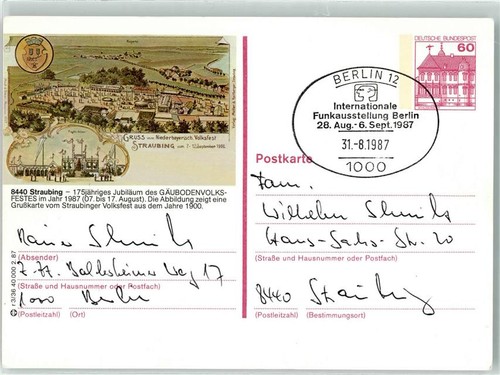 GRUSS vom Niederbayerisch. Volksfest
STRAUBING
8440 Straubing – 175jähriges Jubiläum des GÄUBODENVOLKS-
FESTES im Jahr 1987 (07. bis 17. August). Die Abbildung zeigt eine
Grußkarte vom Straubinger Volksfest aus dem Jahre 1900.
Rainer
(Absender)
z. Zt. Baldersheimer Weg 17
(Straße und Hausnummer oder Postfach)
1000 Berlin
(Postleitzahl) (Ort)
DEUTSCHE BUNDESPOST
60
BERLIN 12
Internationale
Funkausstellung Berlin
28. Aug.-6. Sept. 1987
31.-8.1987
1000
Postkarte
Fam.
Wilhelm
Hans-Sachs-Str. 20
(Straße und Hausnummer oder Postfach)
8440 Straubing
(Postleitzahl) (Bestimmungsort)